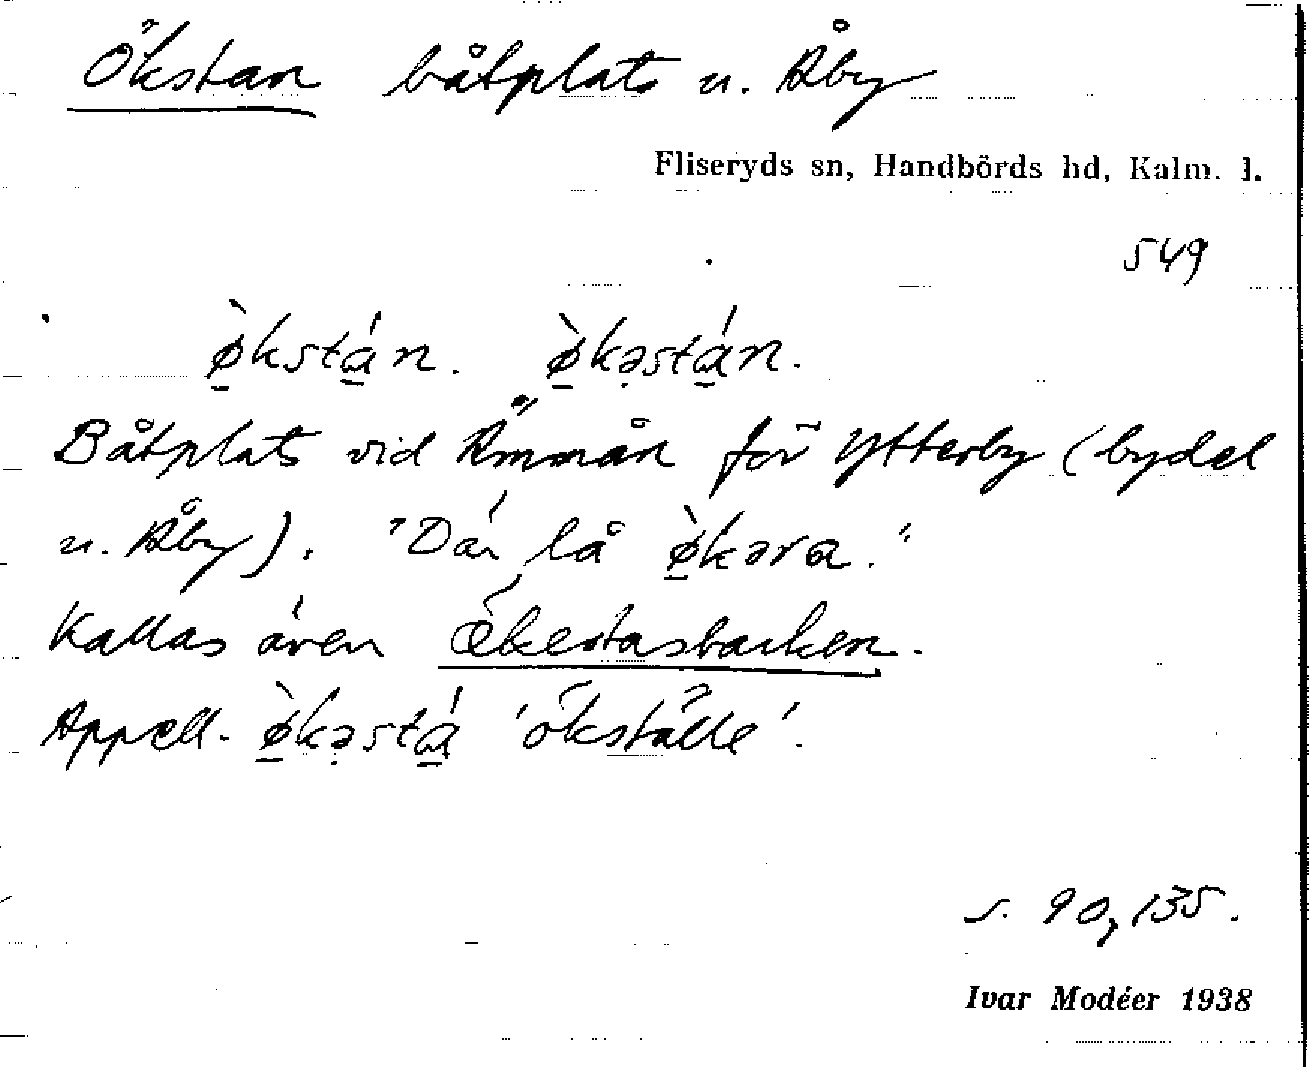 Ökstan båtplats u. Åby
Fliseryds sn, Handbörds hd, Kalm. l.
549
ø̀kstán. ø̀kəstán.
Båtplats vid Ämmån för Ytterby (bydel
u. Åby). "Där lå ø̀kəra."
Kallas även Ökestasbacken.
Appell. ø̀kəstá 'ökställe'.
s. 90, 135.
Ivar Modéer 1938